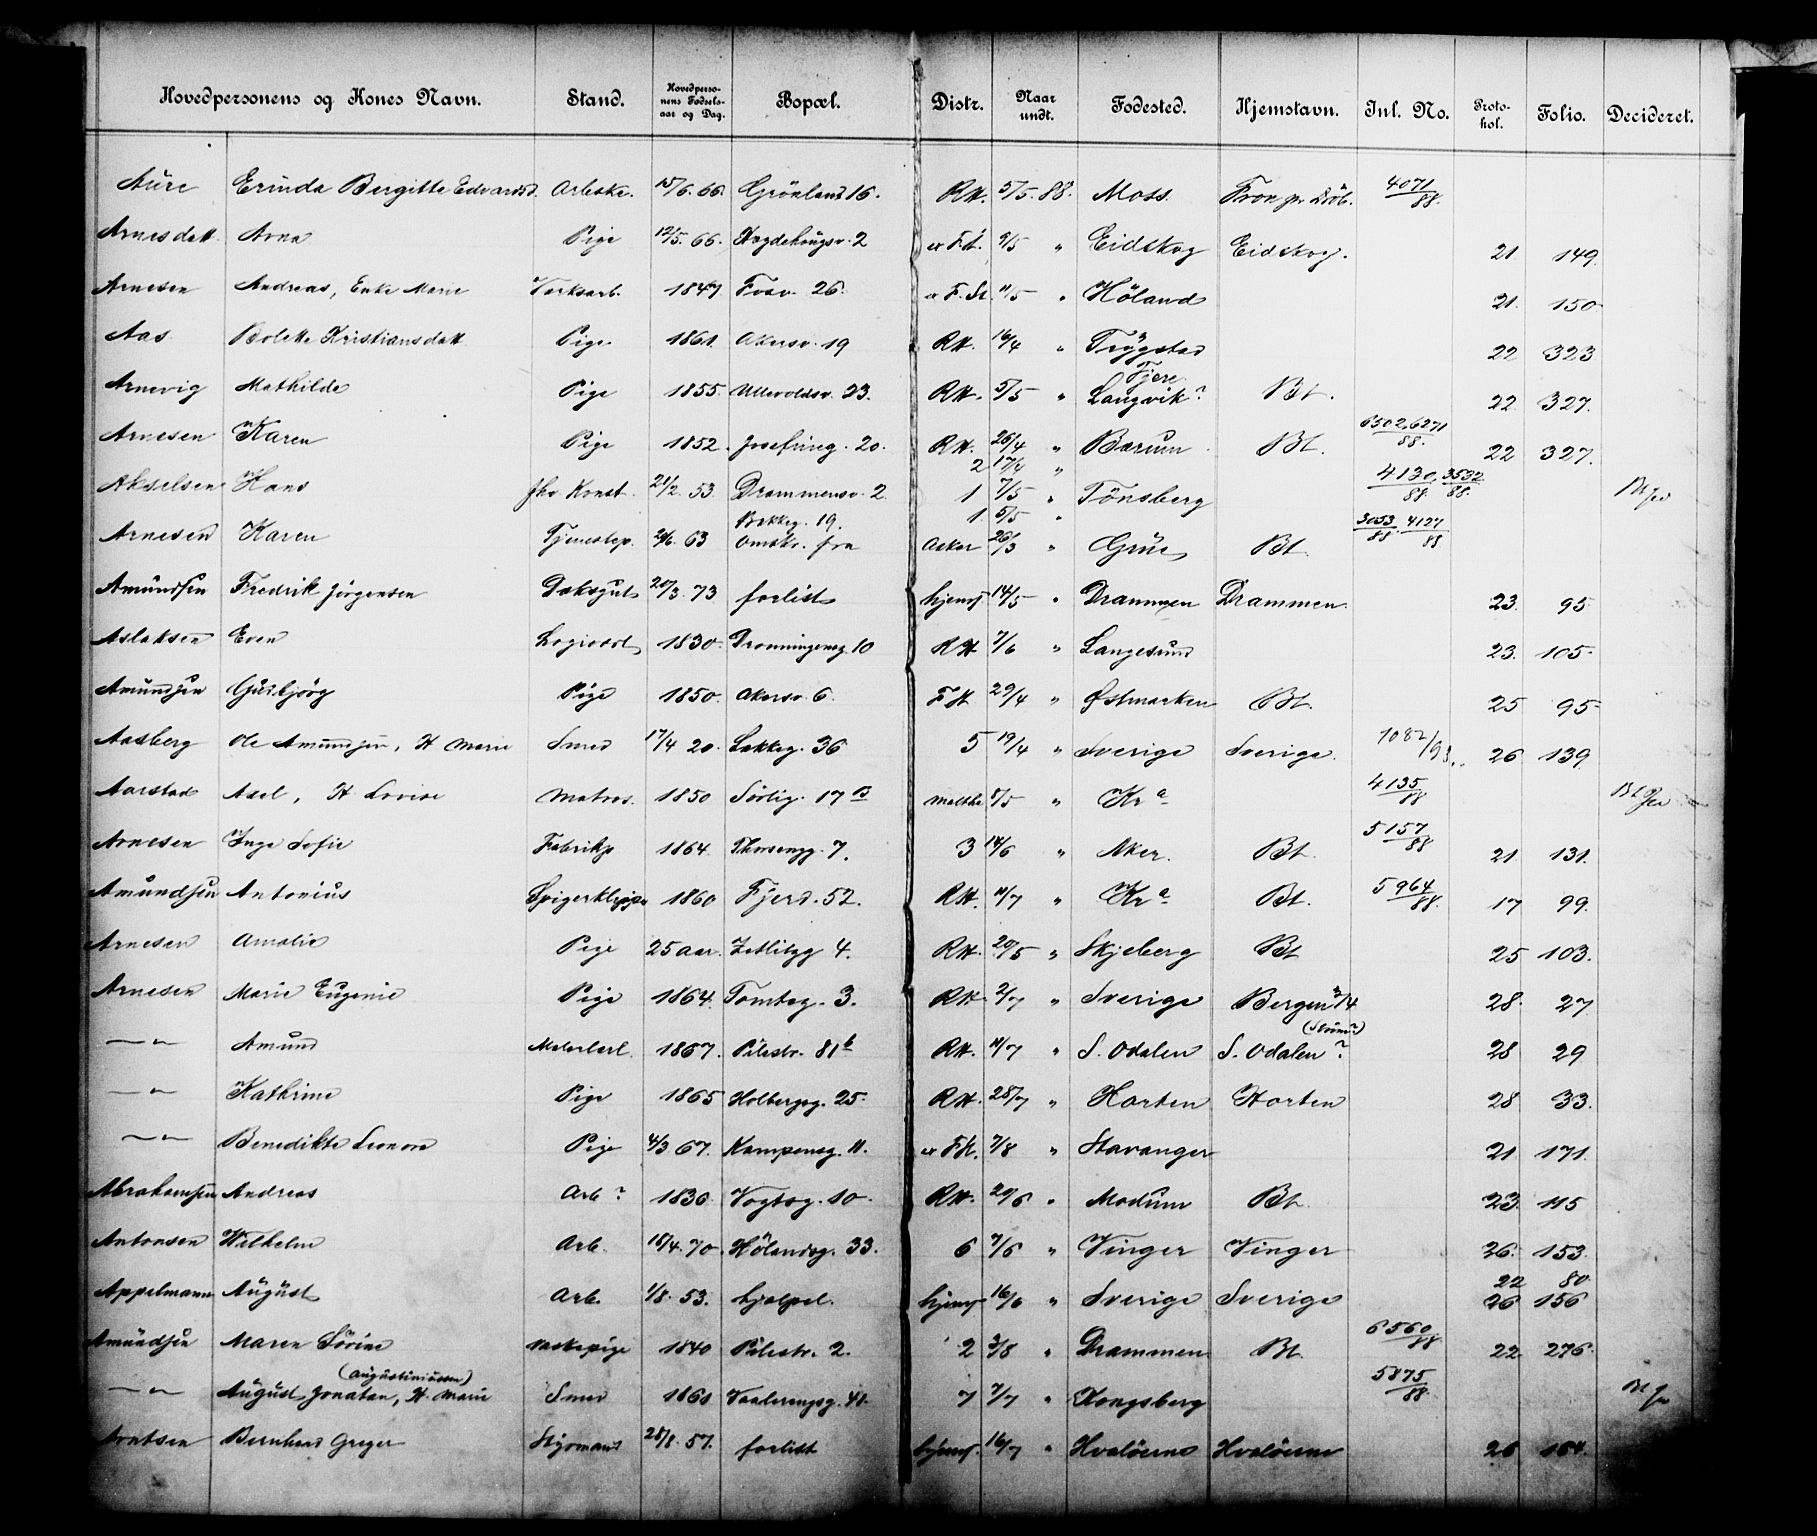 Hovedpersonens og Kones Navn. Stand. Hovedpersonens Fødselsaar og Dag. Bopæl. Distr. Naar undt. Fødested. Hjemstavn. Inl. No. Protokol. Folio. Decideret.
Aure Erinda Bergitte Edvardsd. Arbeske. 15/6. 66. Grönland 16. RH. 5/5. 88. Moss. Fron pr Dröb. 4071/88.
Arnesdatt. Arna Pige 12/5. 66. Hægdehougsv. 2 FH. 9/5 " Eidskog Eidskog. 21 149.
Arnesen Andreas, Enke Marie Værksarb. 1847 Fosv. 26. F.H. 11/5 " Höland 21. 150.
Aas. Bolette Kristiansdatt Pige. 1861. Akersv. 19 RH. 16/4 " Trögstad 22 323
Arnevig Mathilde Pige 1855. Ullevoldsv. 23. RH. 5/5 " Fjere Langvik? Bt. 22 327.
Arnesen Karen Pige 1852. Josefineg. 20. RH. 26/4 " Bærum Bt. 6302,6271/88. 22 327.
2 17/4 "
Akselsen Hans fhv. Konst. 21/2. 53. Drammensv. 2 1 7/5 " Tönsberg 4130/88, 3532/88.
Bakkeg. 19. 1 5/5 "
Arnesen Karen Tjenestep. 24/6. 63 Omstr. fra Asker 26/3 " Grue Bt. 3053/88. 4127/88
Amundsen Fredrik Jörgensen Dæksgut 20/3. 73 forlist hjemf 14/5 " Drammen Drammen. 23. 95
Aslaksen Even Logivært 1830. Dronningensg. 10 RH 7/6 " Langesund 23. 105.
Amundsen Gudbjörg Pige 1850. Akersv. 6. FH 29/4 " Østmarken Bt. 25 95.
Aasberg Ole Amundsen, H. Marie Smed 17/4 20. Lakkeg. 36 5 19/4 " Sverige Sverige. 1082/93. 26 139.
Aarstad Axel, H. Lovise Matros. 1850 Sörlig. 17 B Maltha 8/5 " Kr a 4135/88
Arnesen Inga Sofie Fabrikp 1864. Thorsengg. 7. 3 14/6 " Aker. Bt. 5157/88 21. 131.
Amundsen Antonius Spigerklipper 1860 Fjerd. 52. RH. 11/7 " Kr a Bt. 5964/88. 17 99.
Arnesen Amalie Pige 25 aar. Zetlitzg 4. RH. 20/5 " Skjeberg Bt 25 103.
Arnesen Marie Eugenie Pige 1864. Tomteg. 3. RH. 2/7 " Sverige Bergen 3/4 28. 27
—"— Amund Malerlærl. 1867. Pilestr. 81 b RH. 11/7 " S. Odalen S. Odalen? 28 29
—"— Kathrine Pige 1865 Holbergsg. 25. RH. 28/7 " Horten Horten 28 33.
—"— Benedikte Leonore Pige 4/3 67. Kampensg. 11. FH. 7/8 " Stavanger 21. 171.
Abrahamsen Andreas Arb? 1836. Vogtsg. 10. RH. 20/6 " Modum Bt. 23. 115
Antonsen Wilhelm Arb. 18/4. 70. Hölandsg. 33. 6 7/6 " Vinger Vinger 26. 153.
22 80.
Appelmann August Arb. 1/8. 53. hjælpel. hjemf 16/6 " Sverige Sverige 26 156
Amundsen Maren Sörine Vaskepige 1840 Pilestr. 2. 2 3/8 " Drammen Bt. 6560/88. 22. 276.
(Augustiniussen)
—"— August Jonatan, H. Marie Smed 1861 Vaaleringsg. 41. 7 7/7 " Kongsberg 5875/88.
Arntsen Bernhard Greger Styrmand 28/8. 57. forlist hjemf. 16/7 " Hvalöerne Hvalöerne 26 164.